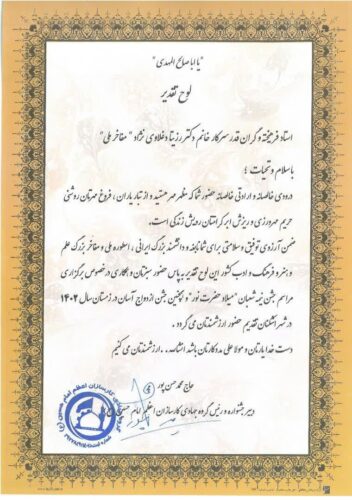 "یا اباصالح المهدی"
لوح تقدیر
استاد فرهیخته و گران قدر سرکار خانم دکتر رزیتا دغلاوی نژاد "مفاخر ملی"
با سلام و تحیات ؛
درودی خالصانه و ارادتی خالصانه حضور شما که مظهر مهر هستید و از تبار یاران ، فروغ مهرتان روشنی
حریم مهرورزی و ریزش ابر کرامتتان رویش زندگی است .
ضمن آرزوی توفیق و سلامتی برای شما نابغه و دانشمند بزرگ ایرانی ، اسطوره ملی و مفاخر بزرگ علم
و هنر و فرهنگ و ادب کشور این لوح تقدیر به پاس حضور سبزتان و همکاری در خصوص برگزاری
مراسم جشن نیمه شعبان "میلاد حضرت نور" و پنجمین جشن ازدواج آسان در زمستان سال ۱۴۰۲
در شهر اشکنان تقدیم حضور ارزشمندتان می گردد .
دست خدا یارتان و مولا علی مددکارتان باشد انشاالله .. ارزشمندتان می کنیم
حاج محمد حسن پور
دبیر جشنواره و رئیس گروه جهادی کارسازان اعظم امام حسین (ع)